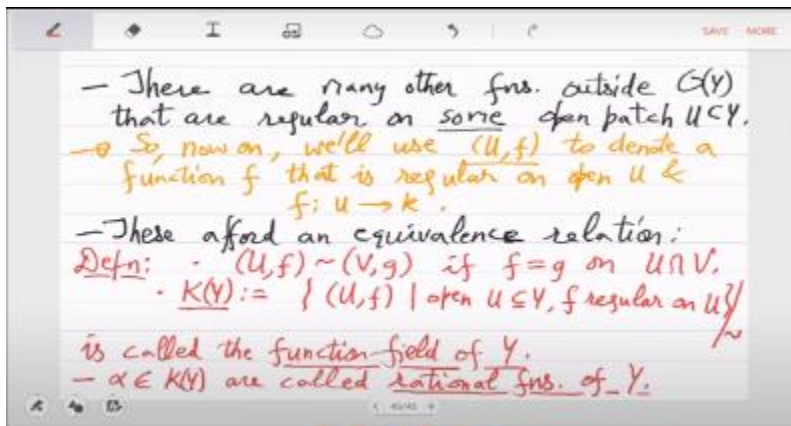 SAVE MORE
- There are many other fns. outside O(Y)
that are regular on some open patch U⊂Y.
→ So, now on, we'll use (U,f) to denote a
function f that is regular on open U &
f: U → k.
- These afford an equivalence relation:
Defn: · (U,f) ~ (V,g) if f=g on U∩V.
· K(Y) := { (U,f) | open U ⊆ Y, f regular on U}/~
is called the function field of Y.
- α ∈ K(Y) are called rational fns. of Y.